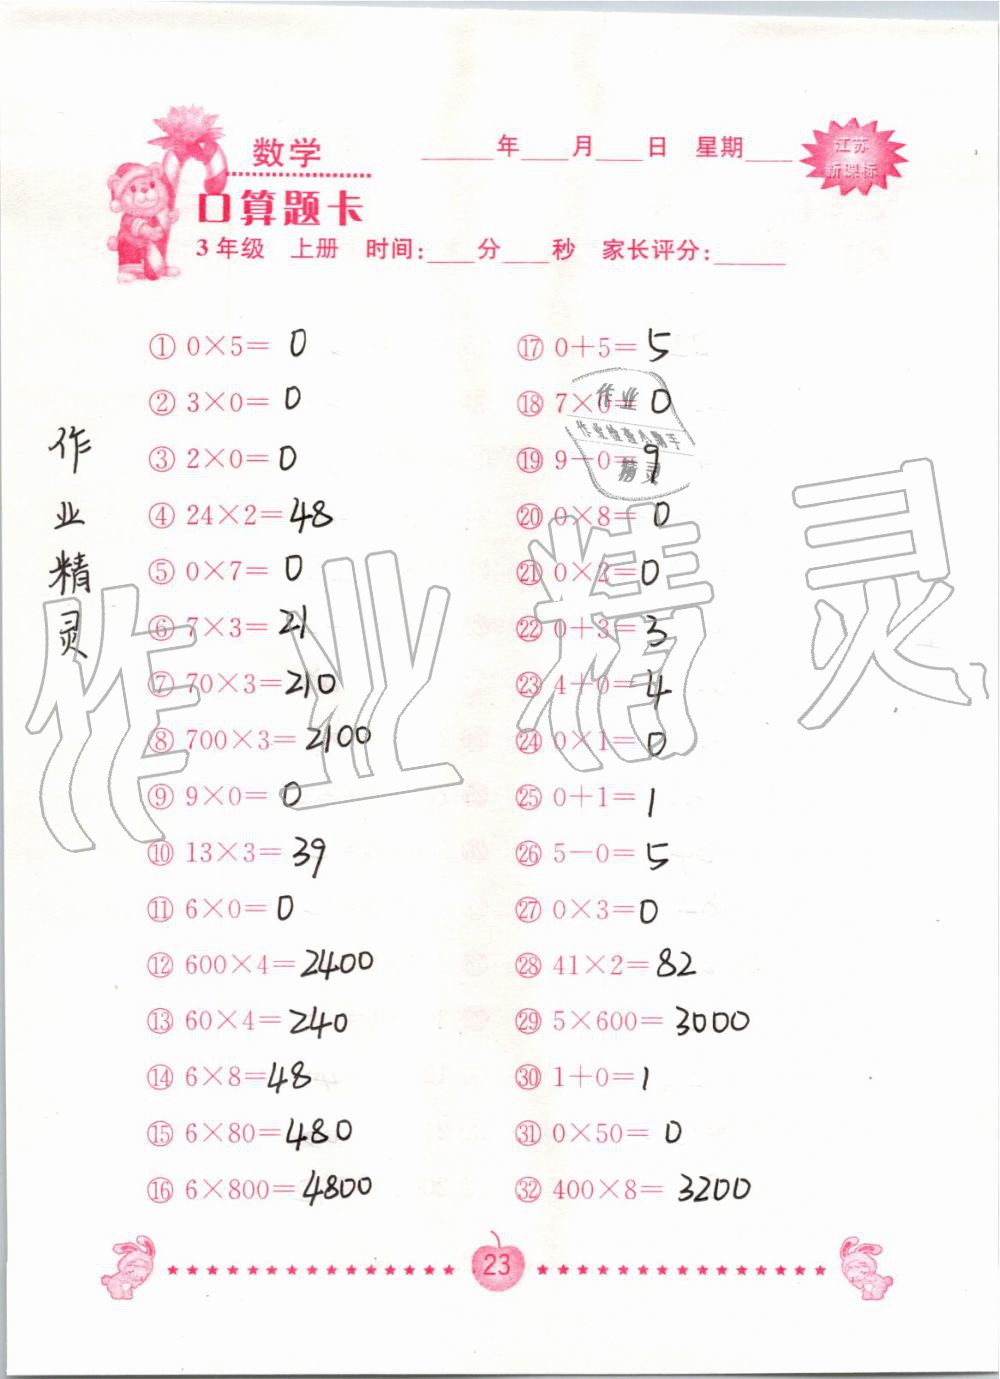 数学
____年___月___日 星期___
江苏
新课标
口算题卡
3年级 上册 时间:___分___秒 家长评分:_____
① 0×5= 0
② 3×0= 0
③ 2×0= 0
④ 24×2= 48
⑤ 0×7= 0
⑥ 7×3= 21
⑦ 70×3= 210
⑧ 700×3= 2100
⑨ 9×0= 0
⑩ 13×3= 39
⑪ 6×0= 0
⑫ 600×4= 2400
⑬ 60×4= 240
⑭ 6×8= 48
⑮ 6×80= 480
⑯ 6×800= 4800
⑰ 0+5= 5
⑱ 7×0= 0
⑲ 9-0= 9
⑳ 0×8= 0
㉑ 0×2= 0
㉒ 0+3= 3
㉓ 4+0= 4
㉔ 0×1= 0
㉕ 0+1= 1
㉖ 5-0= 5
㉗ 0×3= 0
㉘ 41×2= 82
㉙ 5×600= 3000
㉚ 1+0= 1
㉛ 0×50= 0
㉜ 400×8= 3200
作业精灵
作业
作业检查小助手
精灵
作业精灵
23